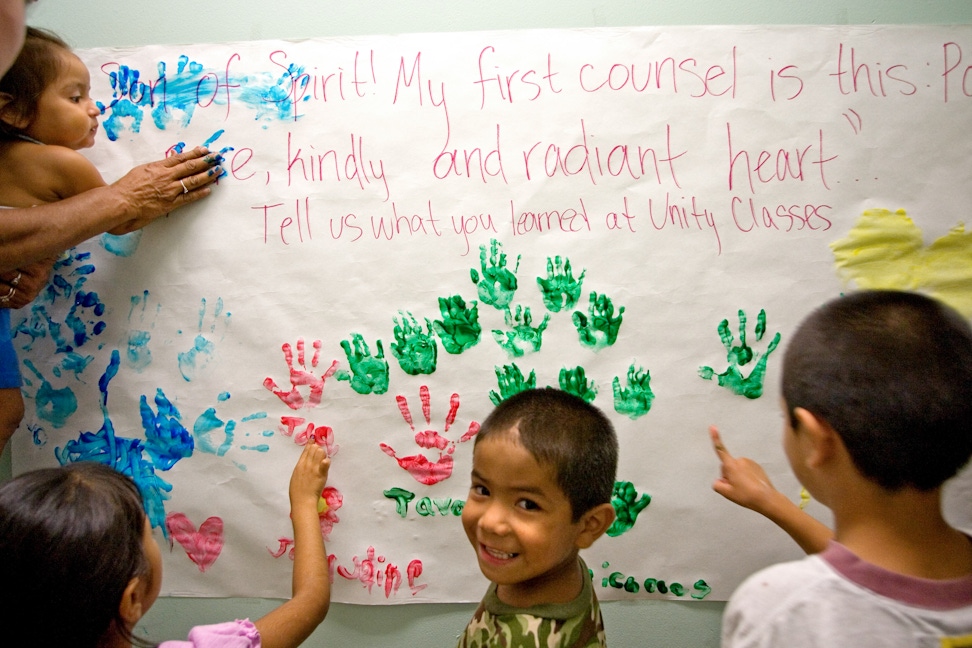 Son of Spirit! My first counsel is this: Po
e, kindly and radiant heart"...
Tell us what you learned at Unity Classes